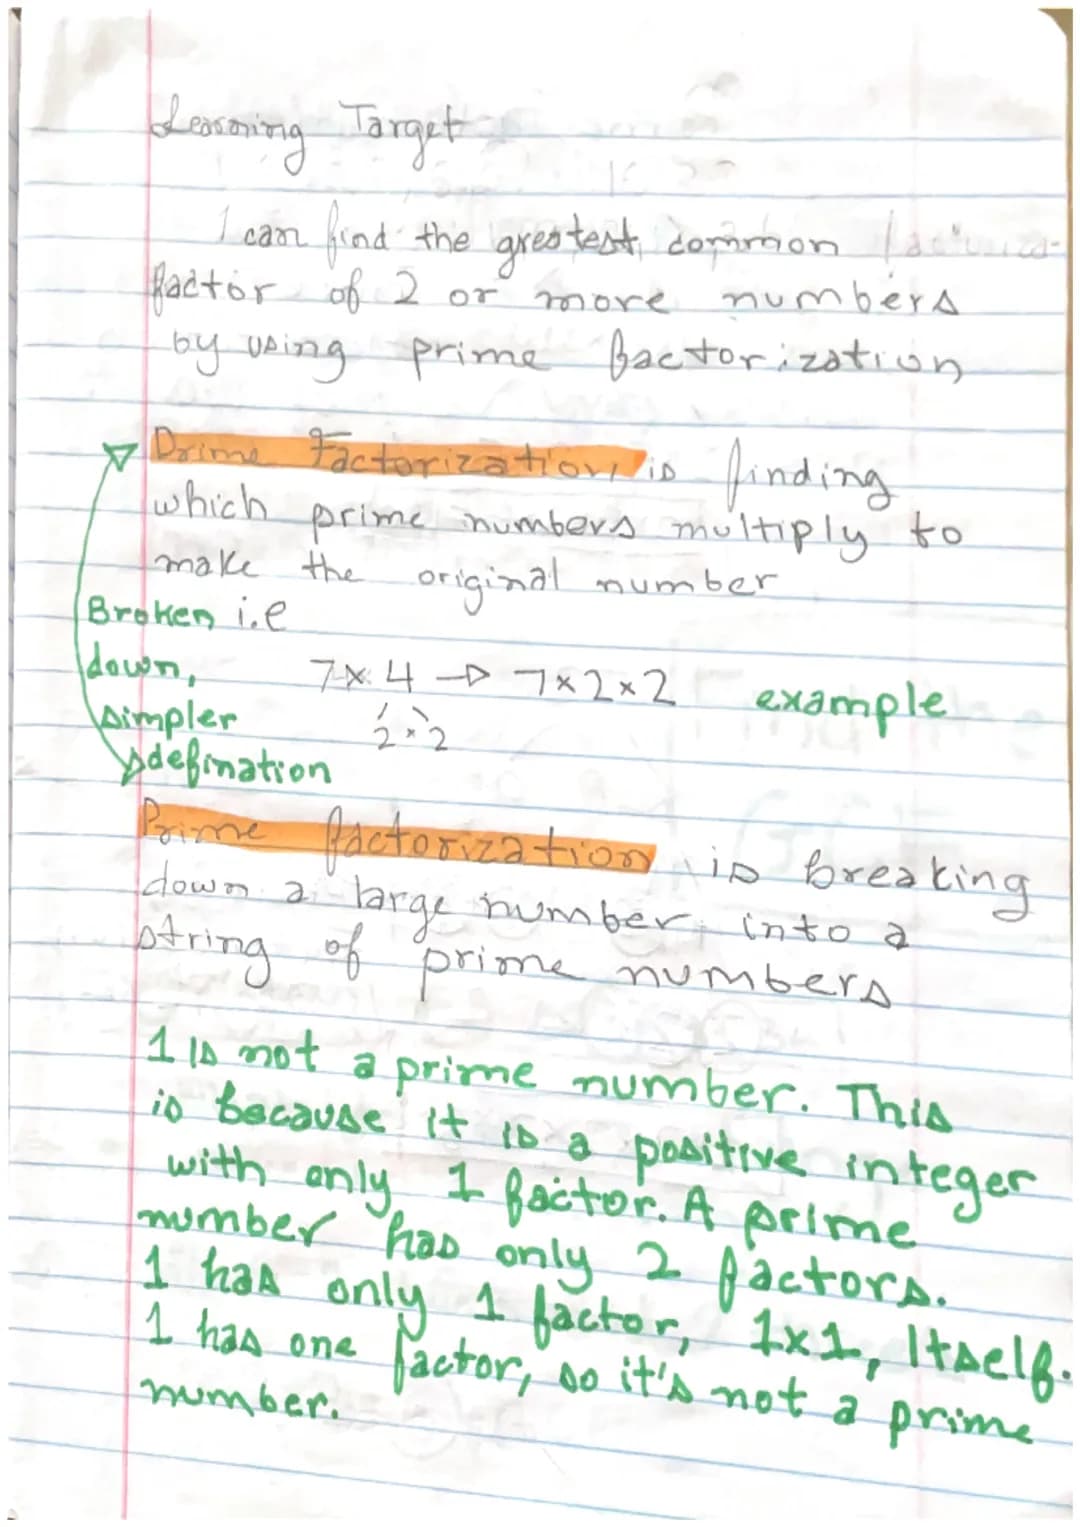 Learning Target
I can find the greatest common
factor of 2 or more numbers
by using prime factorization
Prime Factorization is finding
which prime numbers multiply to
make the original number
Broken i.e
down,
7x4 → 7x2x2 example
simpler
2x2
defination
Prime factorization is breaking
down a large number into a
string of prime numbers
1 is not a prime number. This
is because it is a positive integer
with only 1 factor. A prime
number has only 2 factors.
1 has only 1 factor, 1x1, Itself.
1 has one factor, so it's not a prime
number.